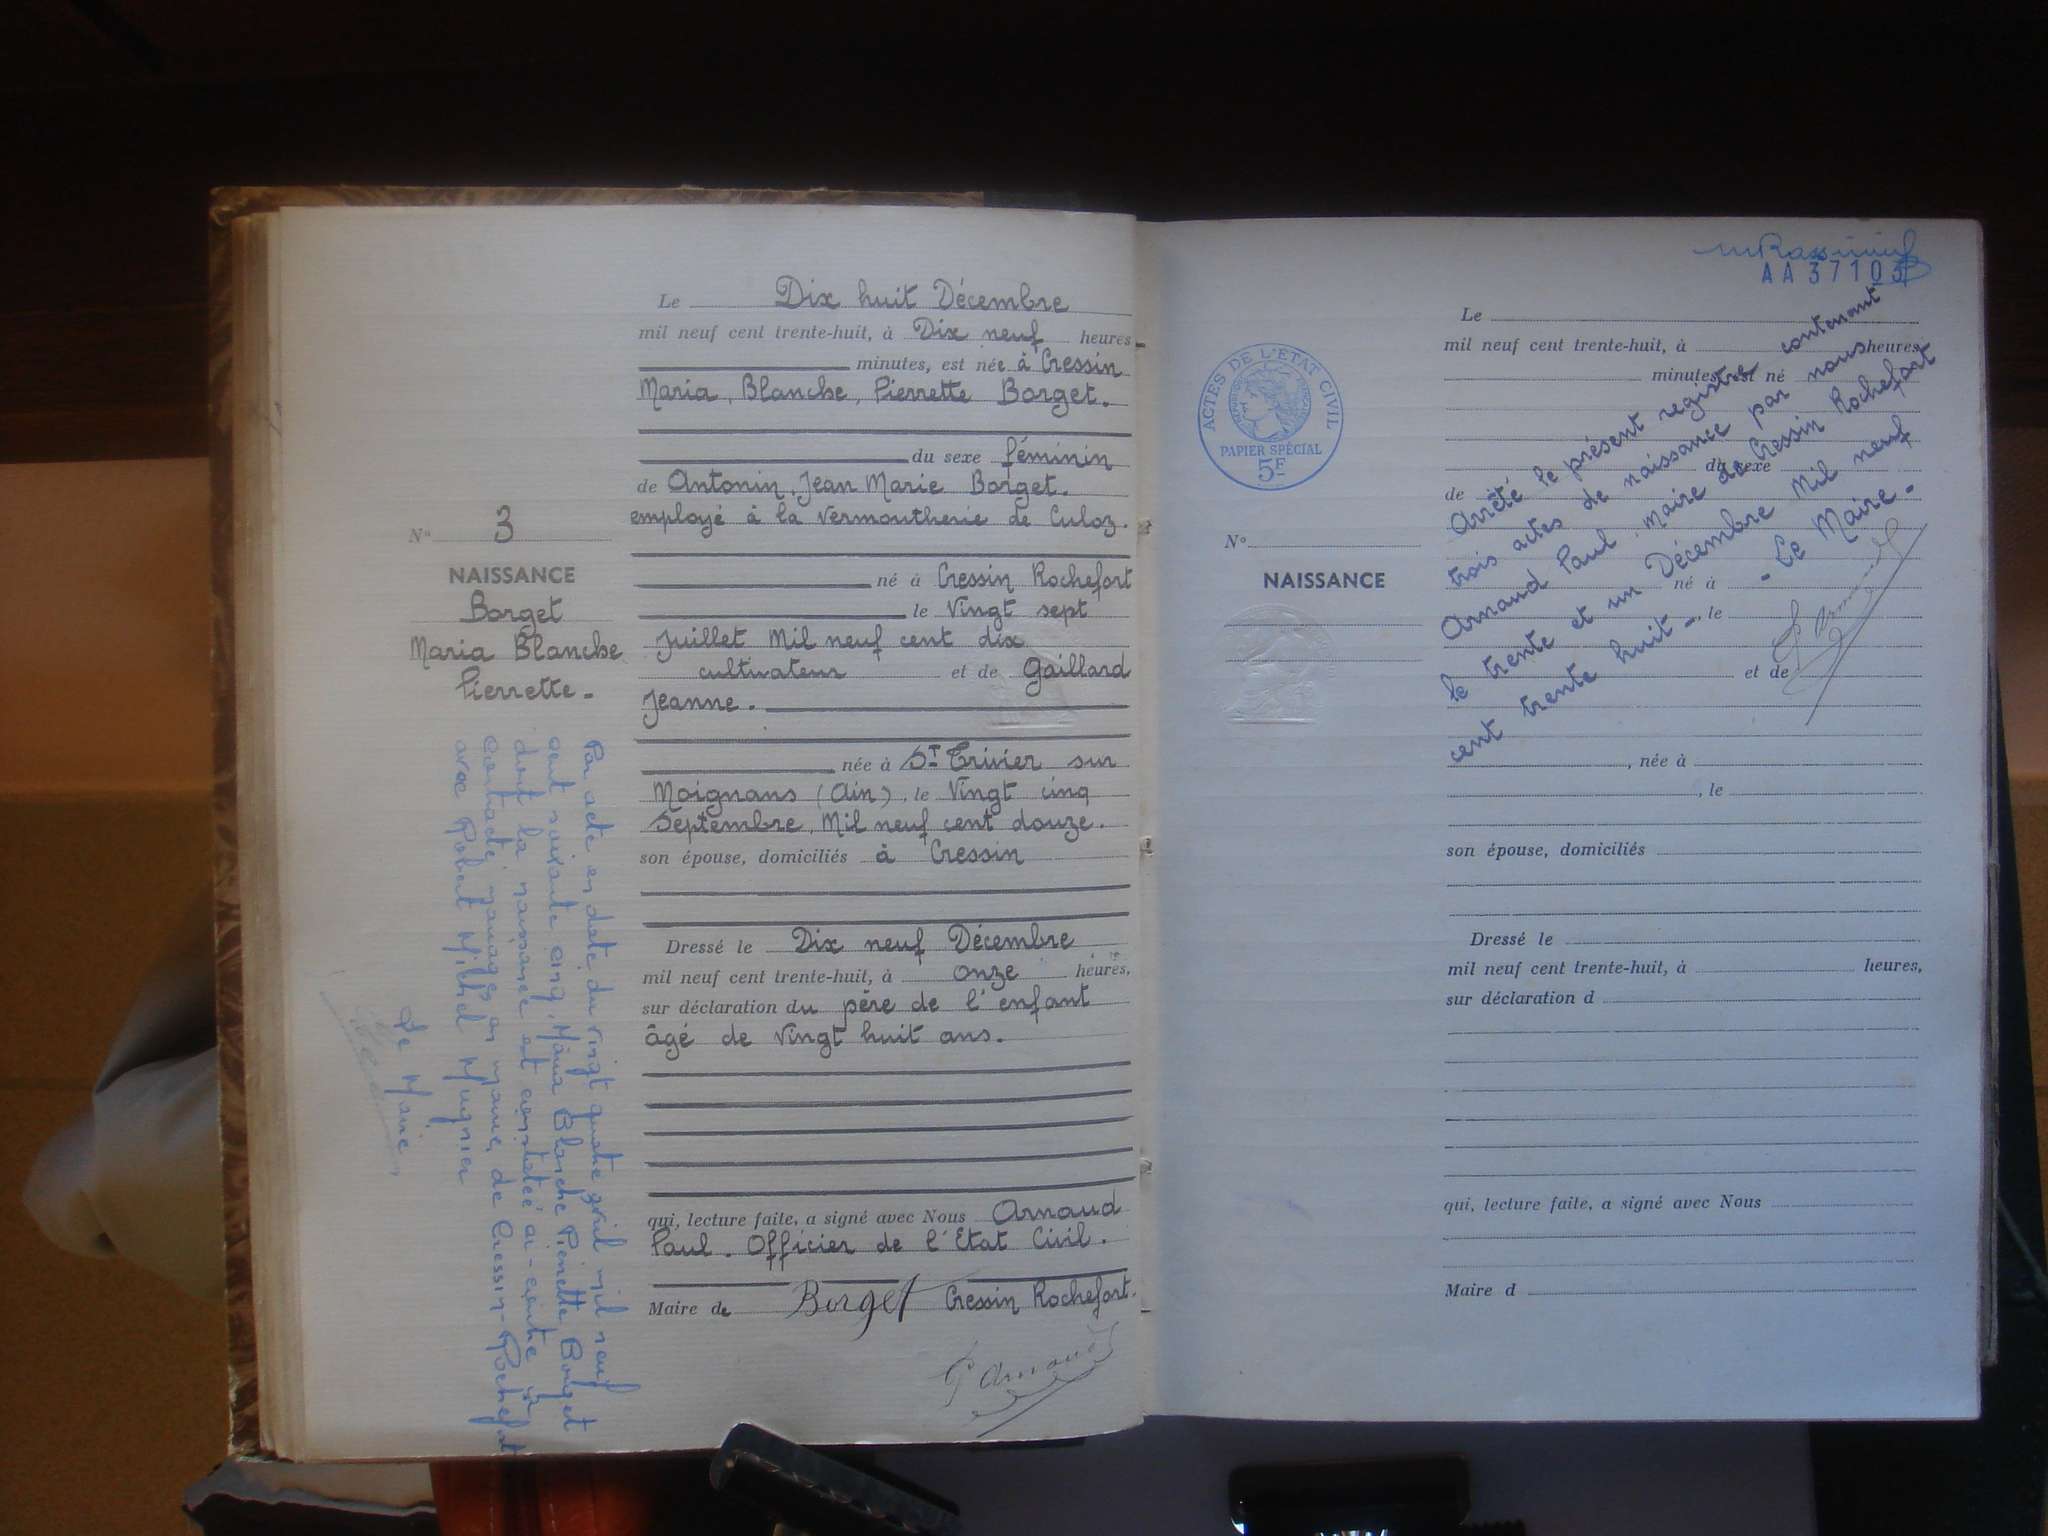 Le Dix huit Décembre
mil neuf cent trente-huit, à Dix neuf heures
minutes, est née à Cressin
Maria, Blanche, Pierrette Borget.
du sexe féminin
de Antonin, Jean Marie Borget.
employé à la vermoutherie de Culoz.
né à Cressin Rochefort
le Vingt sept
Juillet Mil neuf cent dix
cultivateur et de Gaillard
Jeanne.
née à St Trivier sur
Moignans (Ain), le Vingt cinq
Septembre, Mil neuf cent douze.
son épouse, domiciliés à Cressin
Dressé le Dix neuf Décembre
mil neuf cent trente-huit, à onze heures,
sur déclaration du père de l'enfant
âgé de vingt huit ans.
qui, lecture faite, a signé avec Nous Arnaud
Paul. Officier de l'Etat Civil.
Maire de Borget Cressin Rochefort.
P Arnaud
N° 3
NAISSANCE
Borget
Maria Blanche
Pierrette-
Par acte en date du vingt quatre avril mil neuf
cent soixante cinq, Maria Blanche Pierrette Borget
dont la naissance est constatée ci-contre a
contracté mariage en mairie de Cressin-Rochefort
avec Robert Michel Mugnier
Le Maire,
AA 37103
ACTES DE L'ETAT CIVIL
PAPIER SPÉCIAL
5F
N°
NAISSANCE
Le
mil neuf cent trente-huit, à heures
minutes, est né
du sexe
de
né à
le
et de
, née à
, le
son épouse, domiciliés
Dressé le
mil neuf cent trente-huit, à heures,
sur déclaration d
qui, lecture faite, a signé avec Nous
Maire d
Arrêté le présent registre contenant
trois actes de naissance par nous
Arnaud Paul, maire de Cressin Rochefort
le trente et un Décembre Mil neuf
cent trente huit- - Le Maire-
P Arnaud